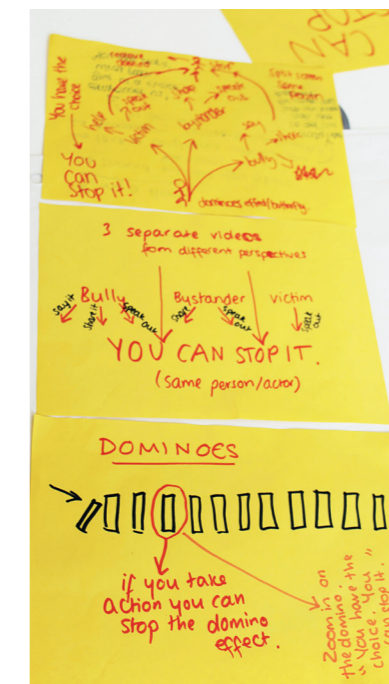 CAN
STOP
You have the
choice
YOU
can
Stop it!
help
victim
speak
out
bystander
speak
out
say
share
bully
Split screen
Same
dominoes effect/butterfly
3 separate videos
from different perspectives
Bully Bystander victim
say it
share it
speak
out
share
speak
out
speak
out
YOU CAN STOP IT.
(same person/actor)
DOMINOES
if you take
action you can
stop the domino
effect.
Zoom in on
the domino.
"You have the
choice. You
can stop it."